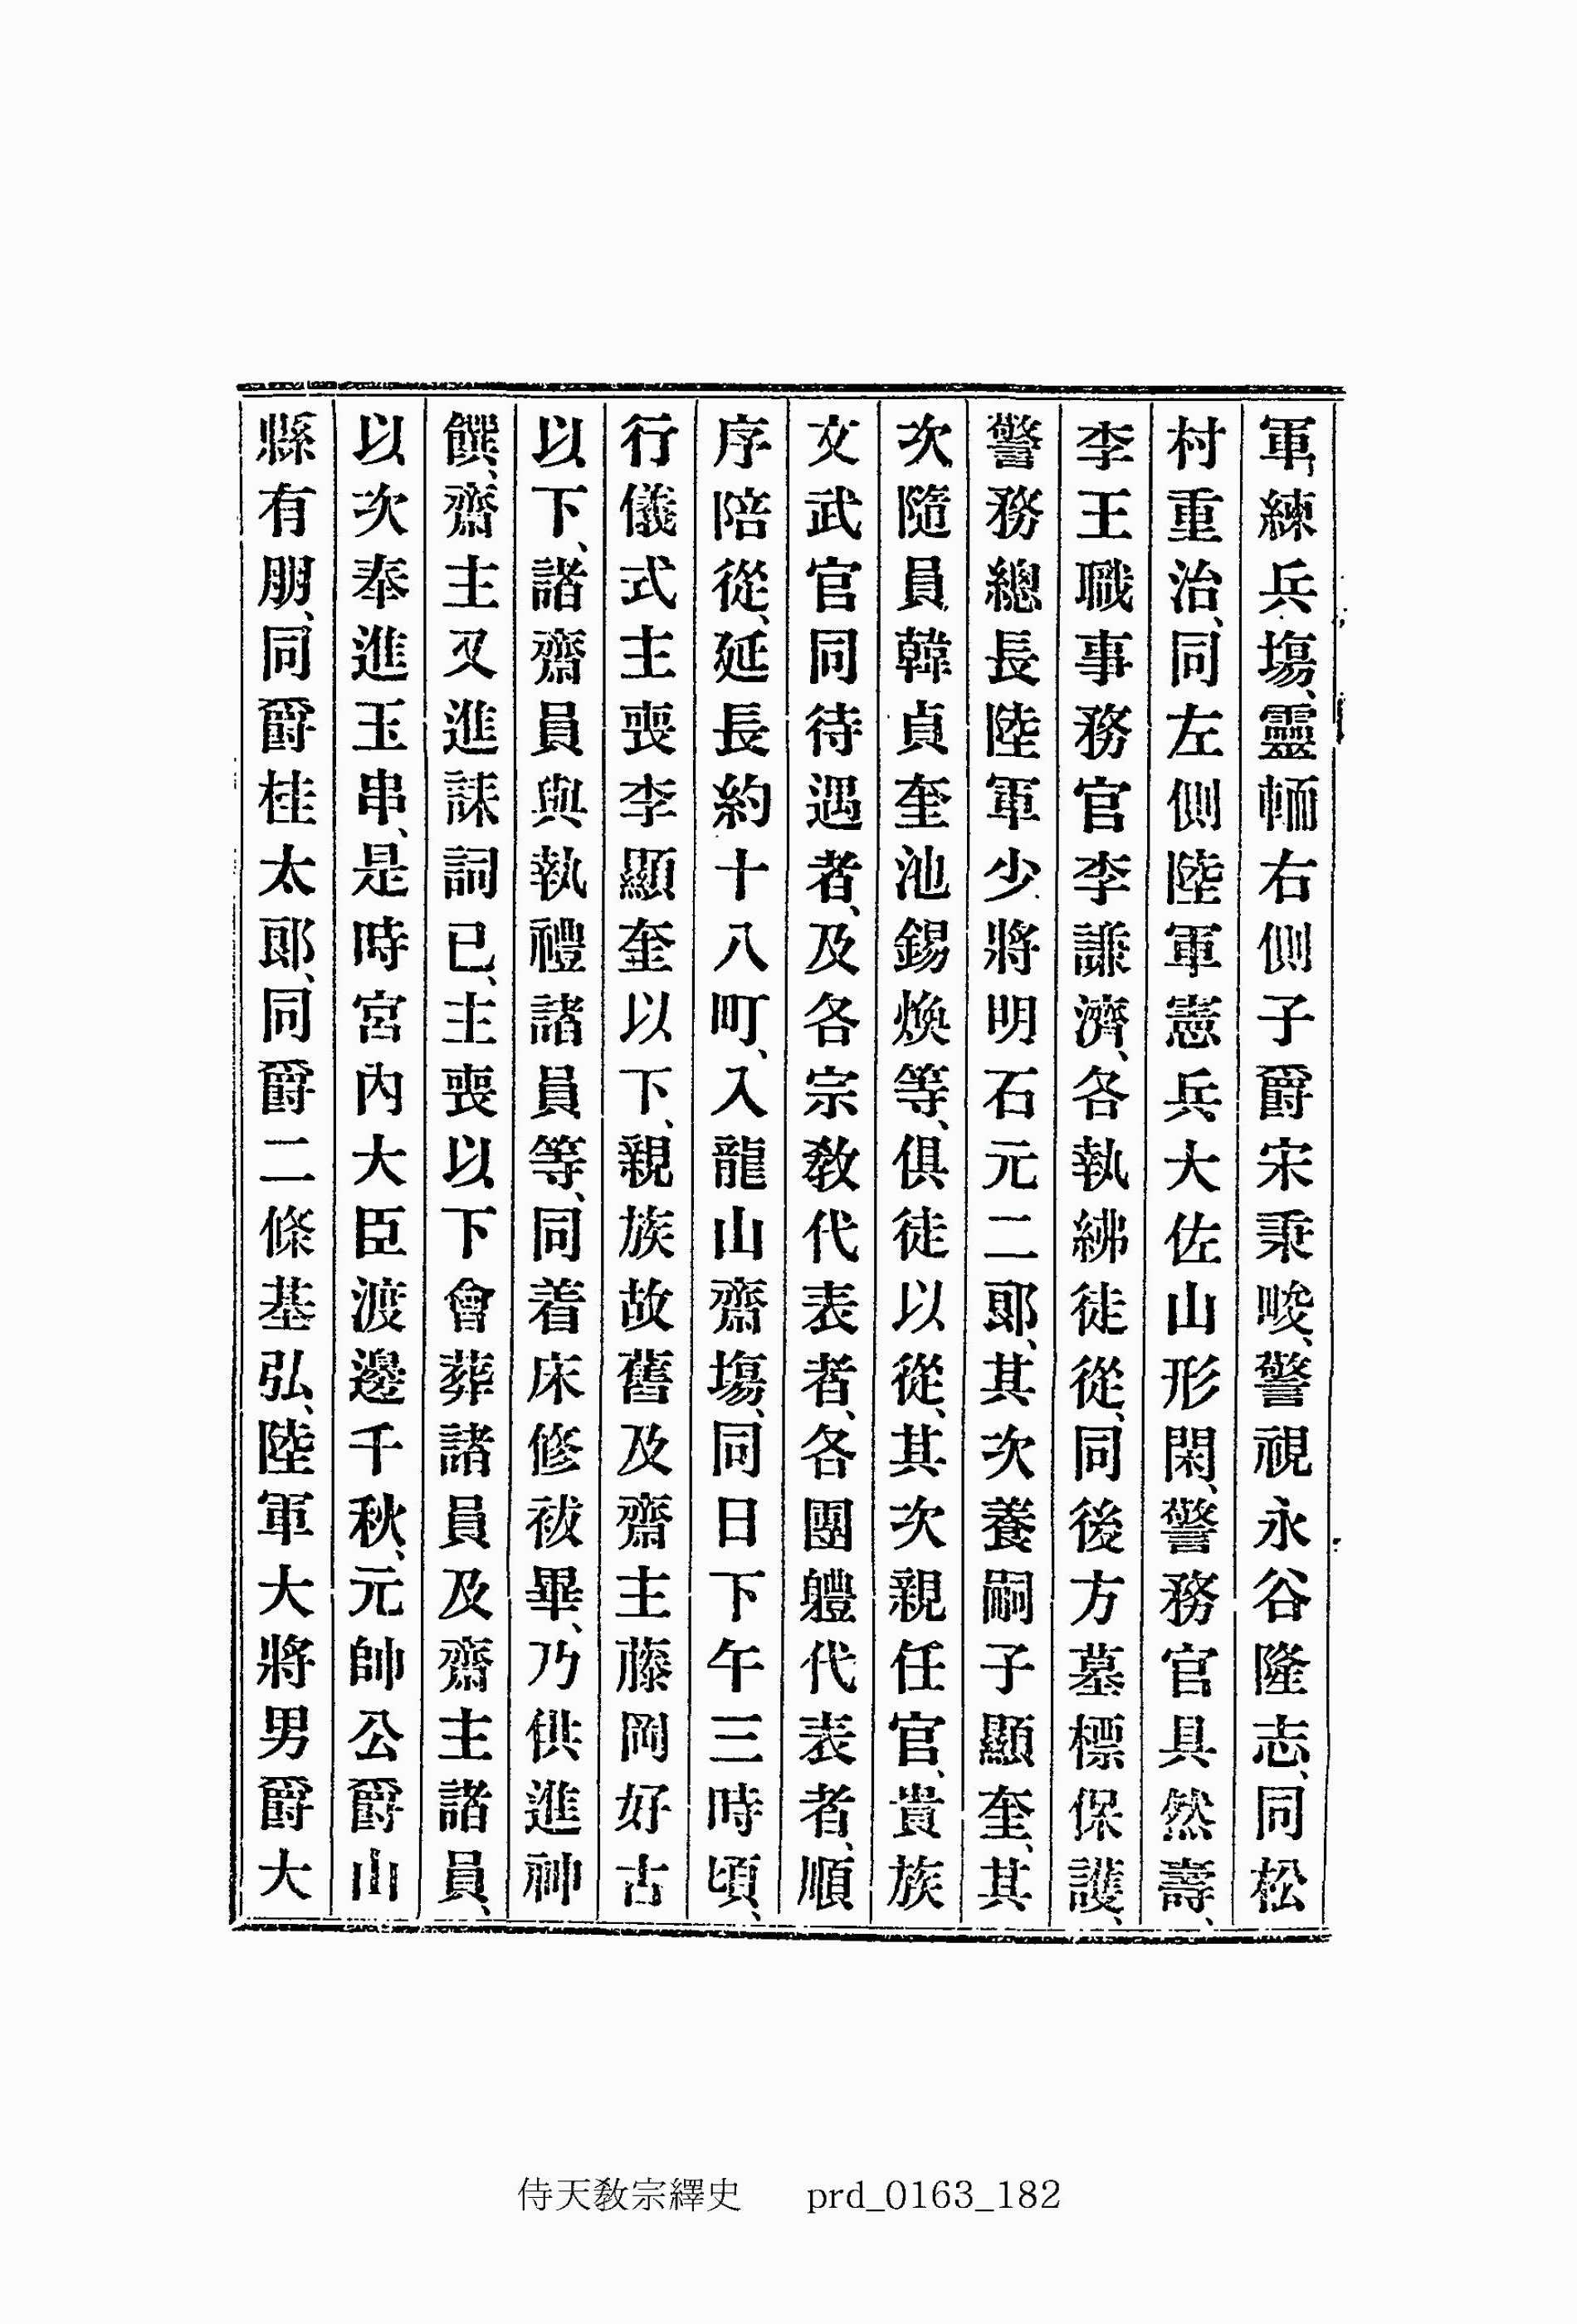 軍、練兵塲、靈輀右側子爵宋秉畯、警視永谷隆志、同松
村重治、同左側陸軍憲兵大佐山形閑、警務官具然壽、
李王職事務官李謙濟、各執紼徒從、同後方墓標保護、
警務總長陸軍少將明石元二郞、其次養嗣子顯奎、其
次隨員韓貞奎池錫煥等、俱徒以從、其次親任官、貴族
文武官同待遇者、及各宗敎代表者、各團軆代表者、順
序陪從、延長約十八町、入龍山齋塲、同日下午三時頃、
行儀式主喪李顯奎以下、親族故舊及齋主藤岡好古
以下、諸齋員與執禮諸員等、同着床修祓畢、乃供進神
饌、齋主又進誄詞已、主喪以下會葬諸員及齋主諸員、
以次奉進玉串、是時宮內大臣渡邊千秋、元帥公爵山
縣有朋、同爵桂太郞、同爵二條基弘、陸軍大將男爵大
侍天敎宗繹史 prd_0163_182